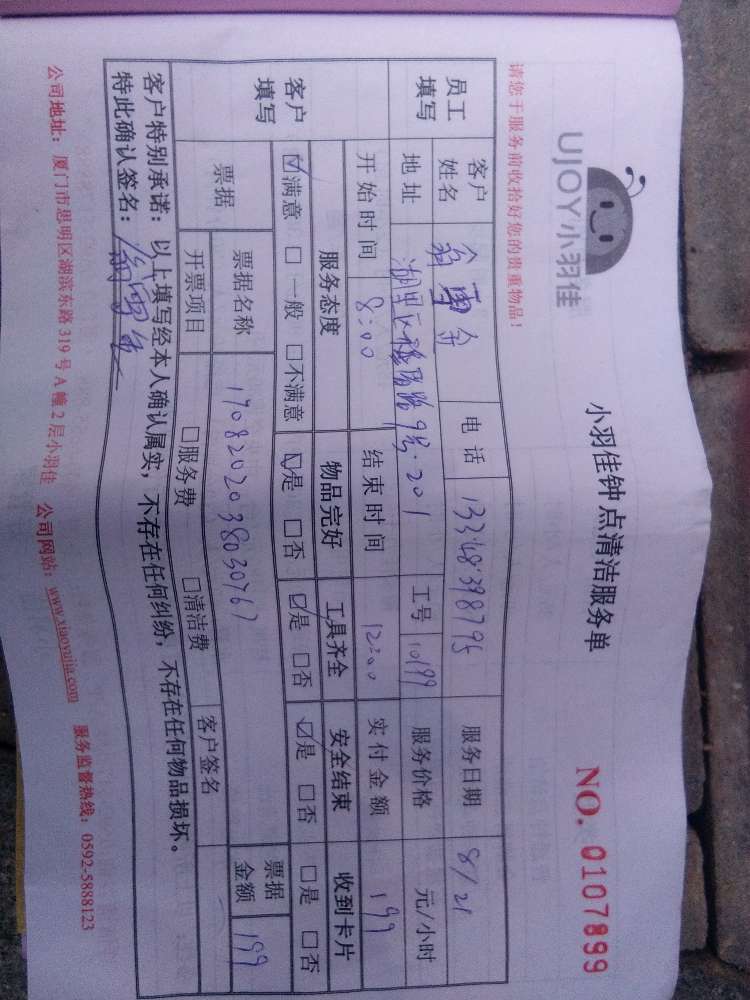 UJOY小羽佳
小羽佳钟点清洁服务单
NO. 0107899
请您于服务前收拾好您的贵重物品！
员工填写
客户姓名 翁雪金 电话 13348398795 服务日期 8/21
地址 湖里区 路9号.201 工号 10199 服务价格 元/小时
开始时间 8:00 结束时间 12:00 实付金额 199
客户填写
服务态度 物品完好 工具齐全 安全结束 收到卡片
☑满意 □一般 □不满意 ☑是 □否 ☑是 □否 ☑是 □否 □是 □否
票据 票据名称 1708202038030767 票据金额 199
开票项目 □服务费 □清洁费 客户签名
客户特别承诺：以上填写经本人确认属实，不存在任何纠纷，不存在任何物品损坏。
特此确认签名：翁雪金
公司地址：厦门市思明区湖滨东路319号A幢2层小羽佳 公司网站：www.xiaoyujia.com 服务监督热线：0592-5888123